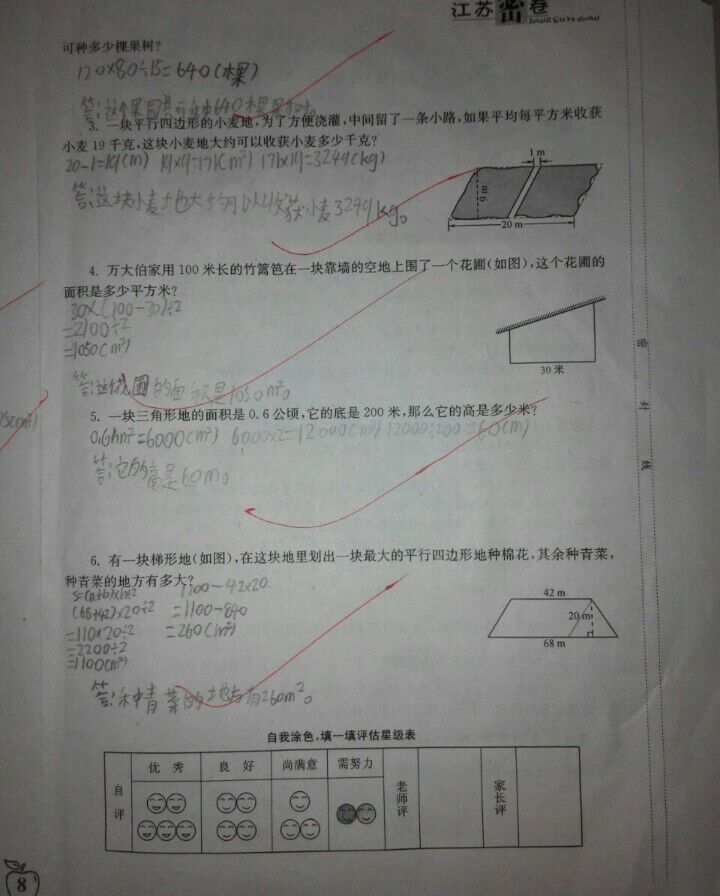 江苏密卷
可种多少棵果树?
120×80÷15=640(棵)
答:这个果园共可种640棵果树。
3. 一块平行四边形的小麦地,为了方便浇灌,中间留了一条小路,如果平均每平方米收获
小麦 19 千克,这块小麦地大约可以收获小麦多少千克?
20-1=19(m) 19×9=171(m²) 171×19=3249(kg)
1 m
9 m
20 m
答:这块小麦地大约可以收获小麦3249kg。
4. 万大伯家用 100 米长的竹篱笆在一块靠墙的空地上围了一个花圃(如图),这个花圃的
面积是多少平方米?
30×(100-30)÷2
=2100÷2
=1050(m²)
30 米
答:这花圃的面积是1050m²。
5. 一块三角形地的面积是 0.6 公顷,它的底是 200 米,那么它的高是多少米?
0.6hm²=6000(m²) 6000×2=12000(m²) 12000÷200=60(m)
答:它的高是60m。
6. 有一块梯形地(如图),在这块地里划出一块最大的平行四边形地种棉花,其余种青菜,
种青菜的地方有多大?
S=(a+b)×h÷2 1100-42×20
(68+42)×20÷2 =1100-840
=110×20÷2 =260(m²)
=2200÷2
=1100(m²)
42 m
20 m
68 m
答:种青菜的地方有260m²。
自我涂色,填一填评估星级表
自评 优秀 良好 尚满意 需努力 老师评 家长评
密
封
线
8